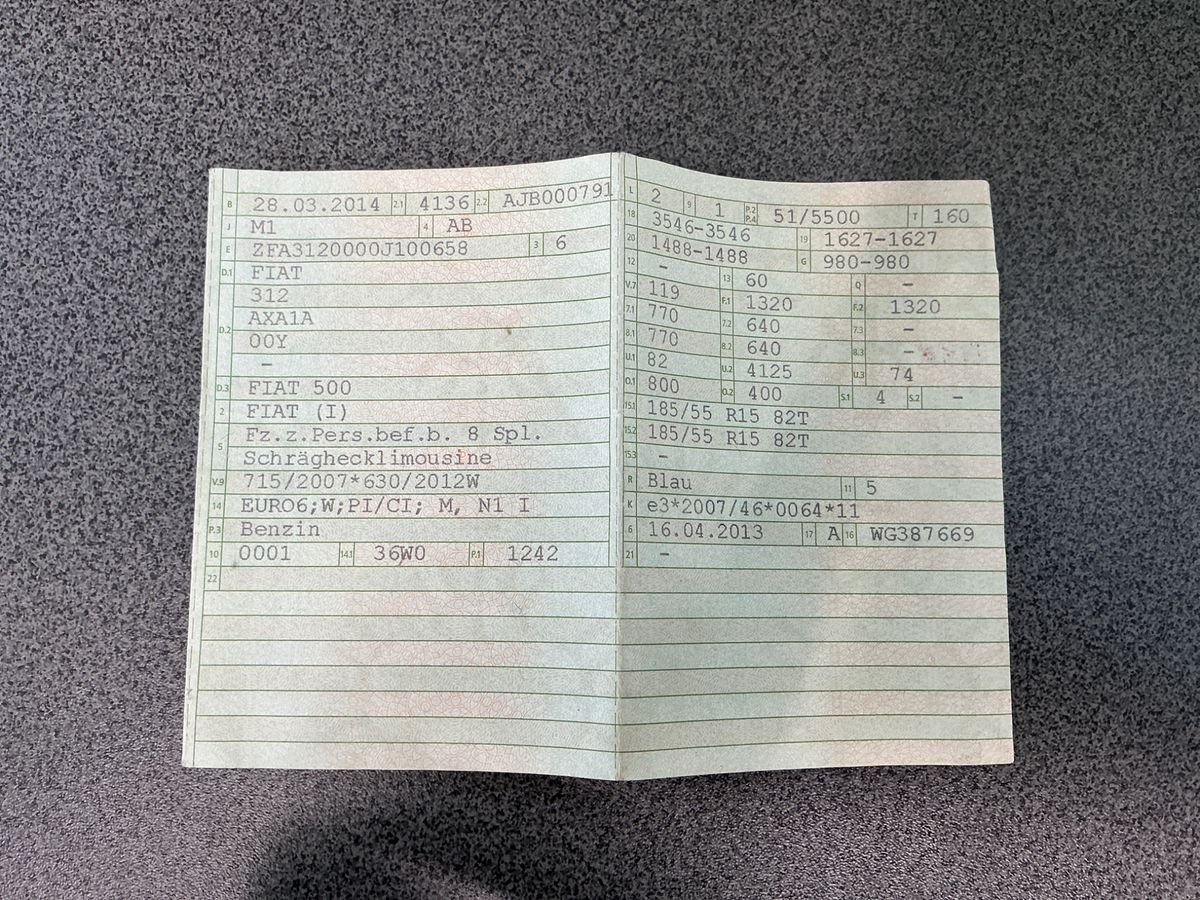 B 28.03.2014 2.1 4136 2.2 AJB000791
J M1 4 AB
E ZFA3120000J100658 3 6
D.1 FIAT
312
AXA1A
D.2 00Y
-
D.3 FIAT 500
2 FIAT (I)
Fz.z.Pers.bef.b. 8 Spl.
5 Schräghecklimousine
V.9 715/2007*630/2012W
14 EURO6;W;PI/CI; M, N1 I
P.3 Benzin
10 0001 14.1 36W0 P.1 1242
22
L 2 9 1 P.2 P.4 51/5500 T 160
18 3546-3546 19 1627-1627
20 1488-1488 G 980-980
12 - 13 60 Q -
V.7 119 F.1 1320 F.2 1320
7.1 770 7.2 640 7.3 -
8.1 770 8.2 640 8.3 -
U.1 82 U.2 4125 U.3 74
O.1 800 O.2 400 S.1 4 S.2 -
15.1 185/55 R15 82T
15.2 185/55 R15 82T
15.3 -
R Blau 11 5
K e3*2007/46*0064*11
6 16.04.2013 17 A 16 WG387669
21 -